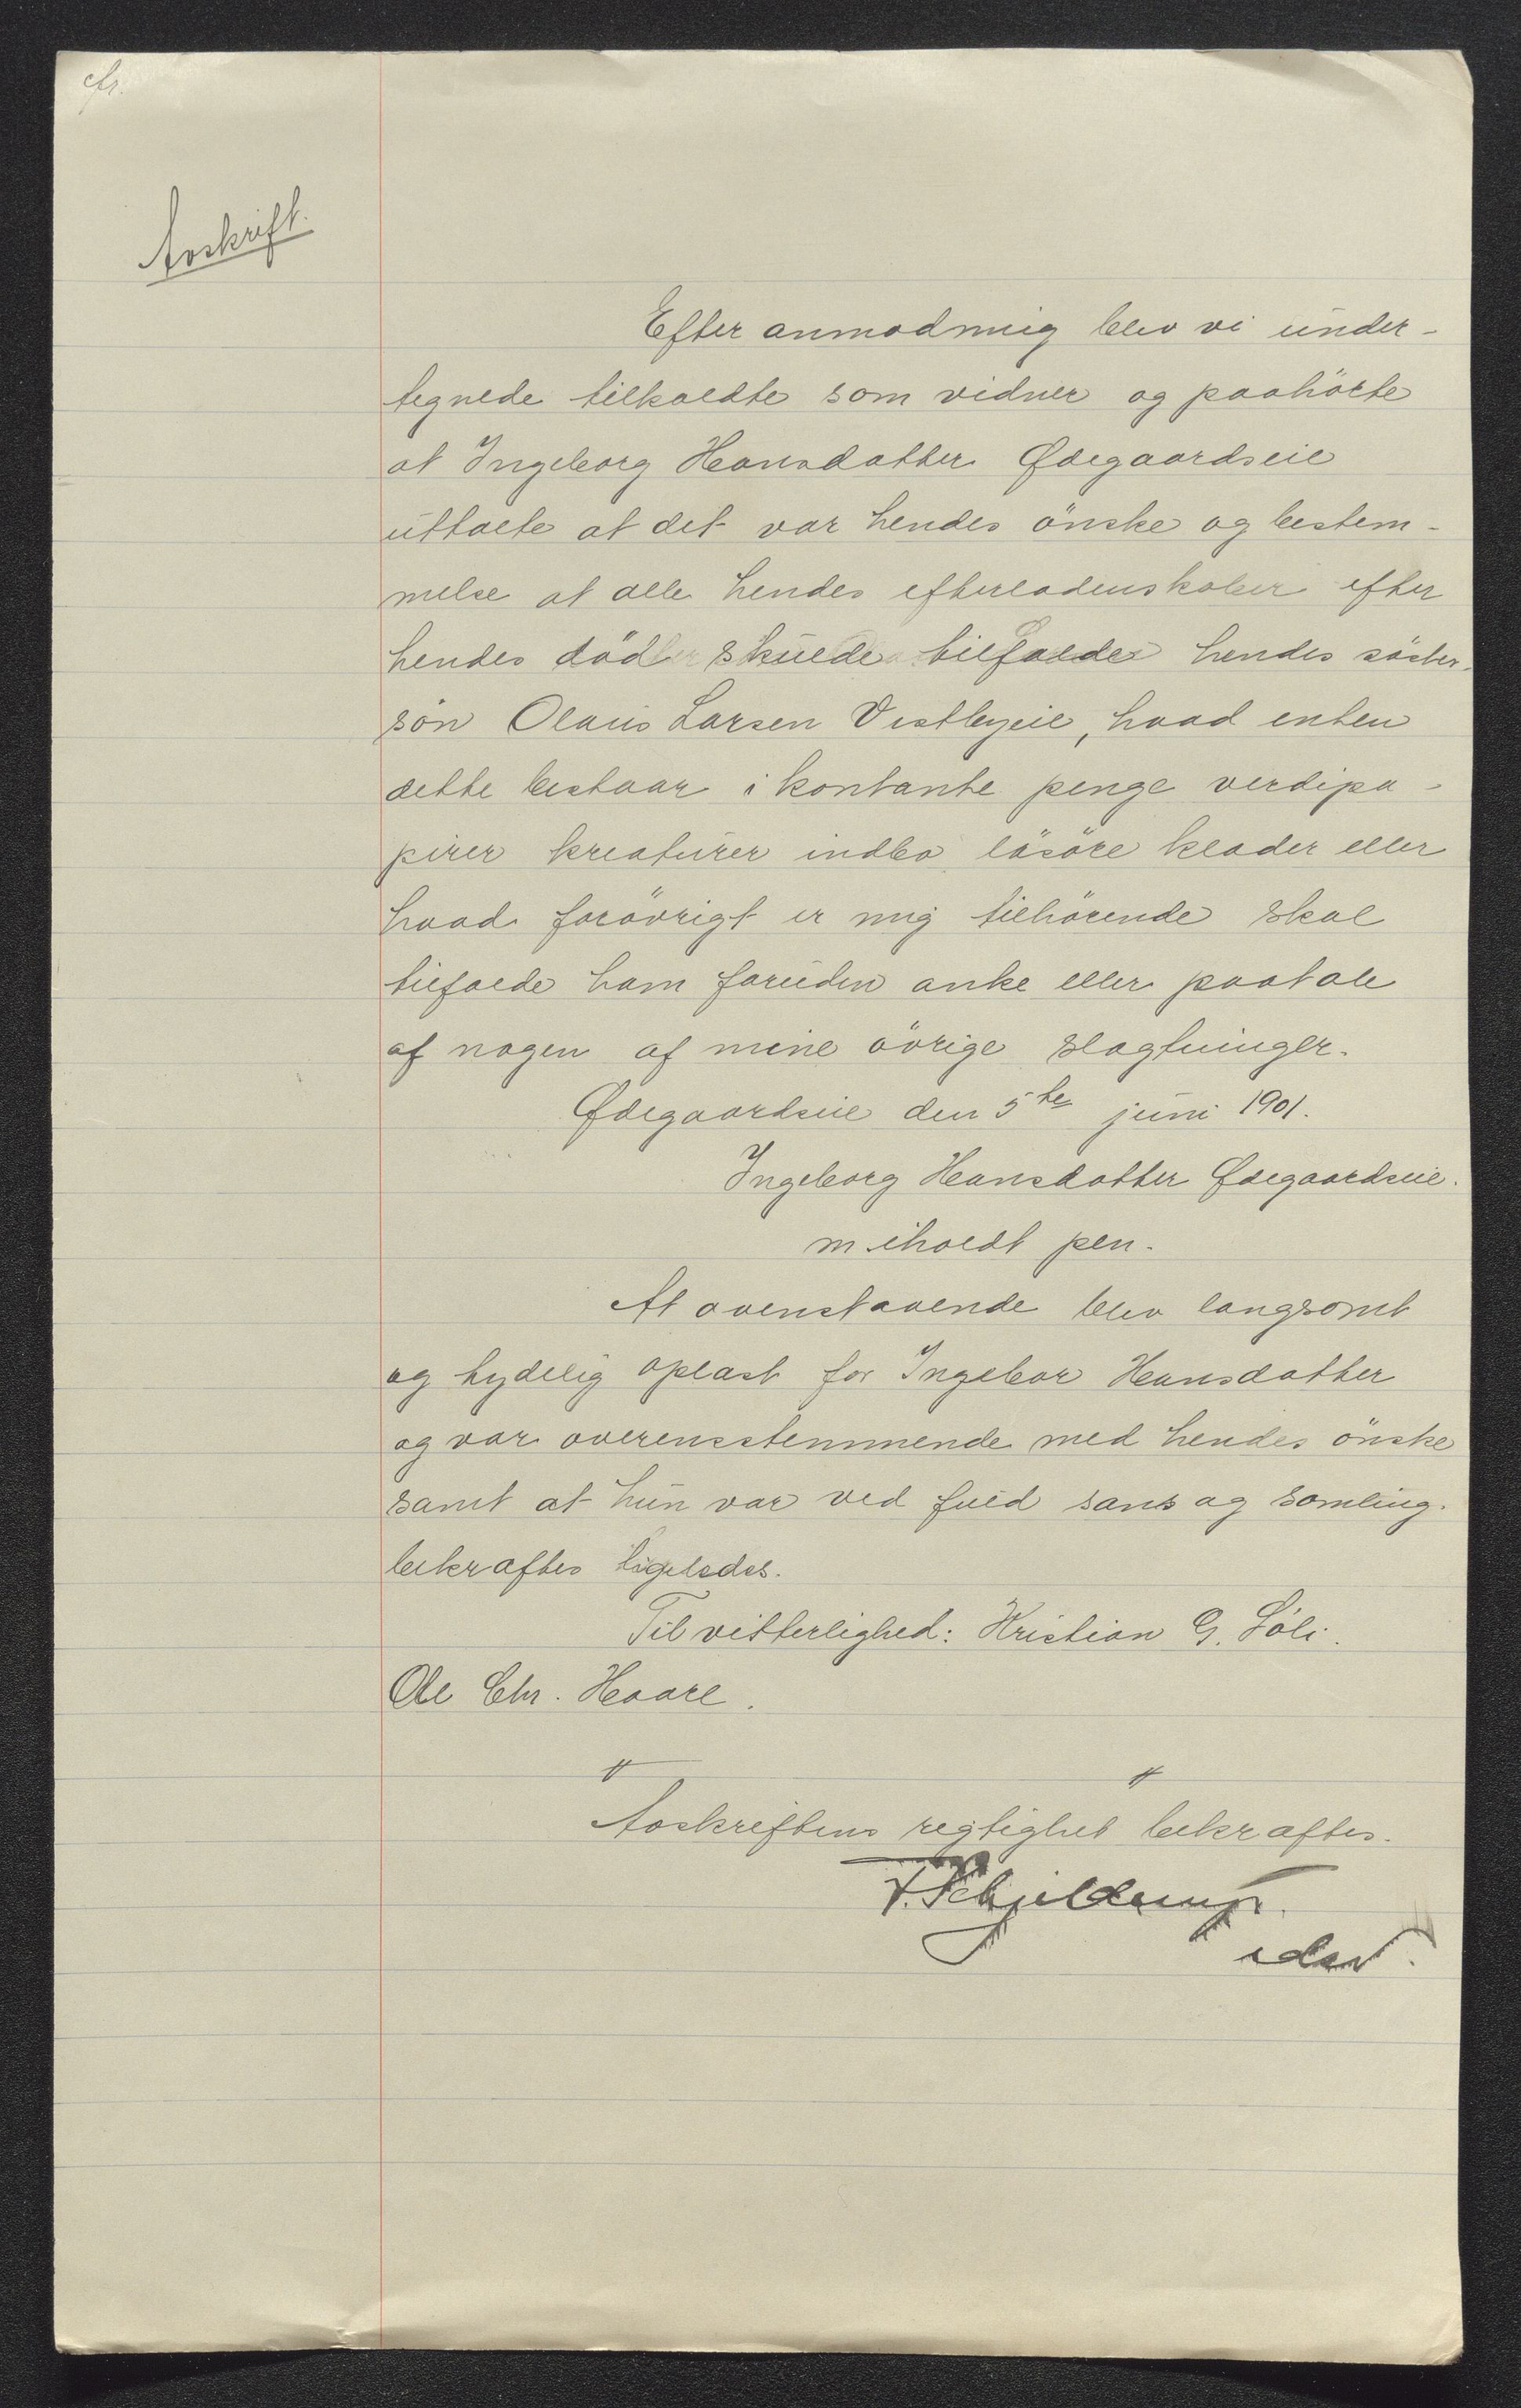 Avskrift.
Efter anmodning blev vi under-
tegnede tilkaldte som vidner og paahörte
at Ingeborg Hansdatter Ødegaardseie
uttalte at det var hendes önske og bestem-
melse at alle hendes efterladenskaber efter
hendes död skulde tilfalde hendes söster-
sön Olaus Larsen Vestbyeie, hvad enten
dette bestaar i kontante penge verdipa-
pirer kreaturer indbo lösöre klæder eller
hvad forövrigt er mig tilhörende skal
tilfalde ham foruden anke eller paatale
af nogen af mine övrige slagtninger.
Ødegaardseie den 5te juni 1901.
Ingeborg Hansdatter Ødegaardseie.
m iholdt pen.
At ovenstaaende blev langsomt
og tydelig oplæst for Ingebor Hansdatter
og var overensstemmende med hendes önske
samt at hun var ved fuld sans og samling.
bekræftes ligeledes.
Til vitterlighed: Kristian G. Löli.
Ole Chr. Haare.
Avskriftens rigtighet bekræftes.